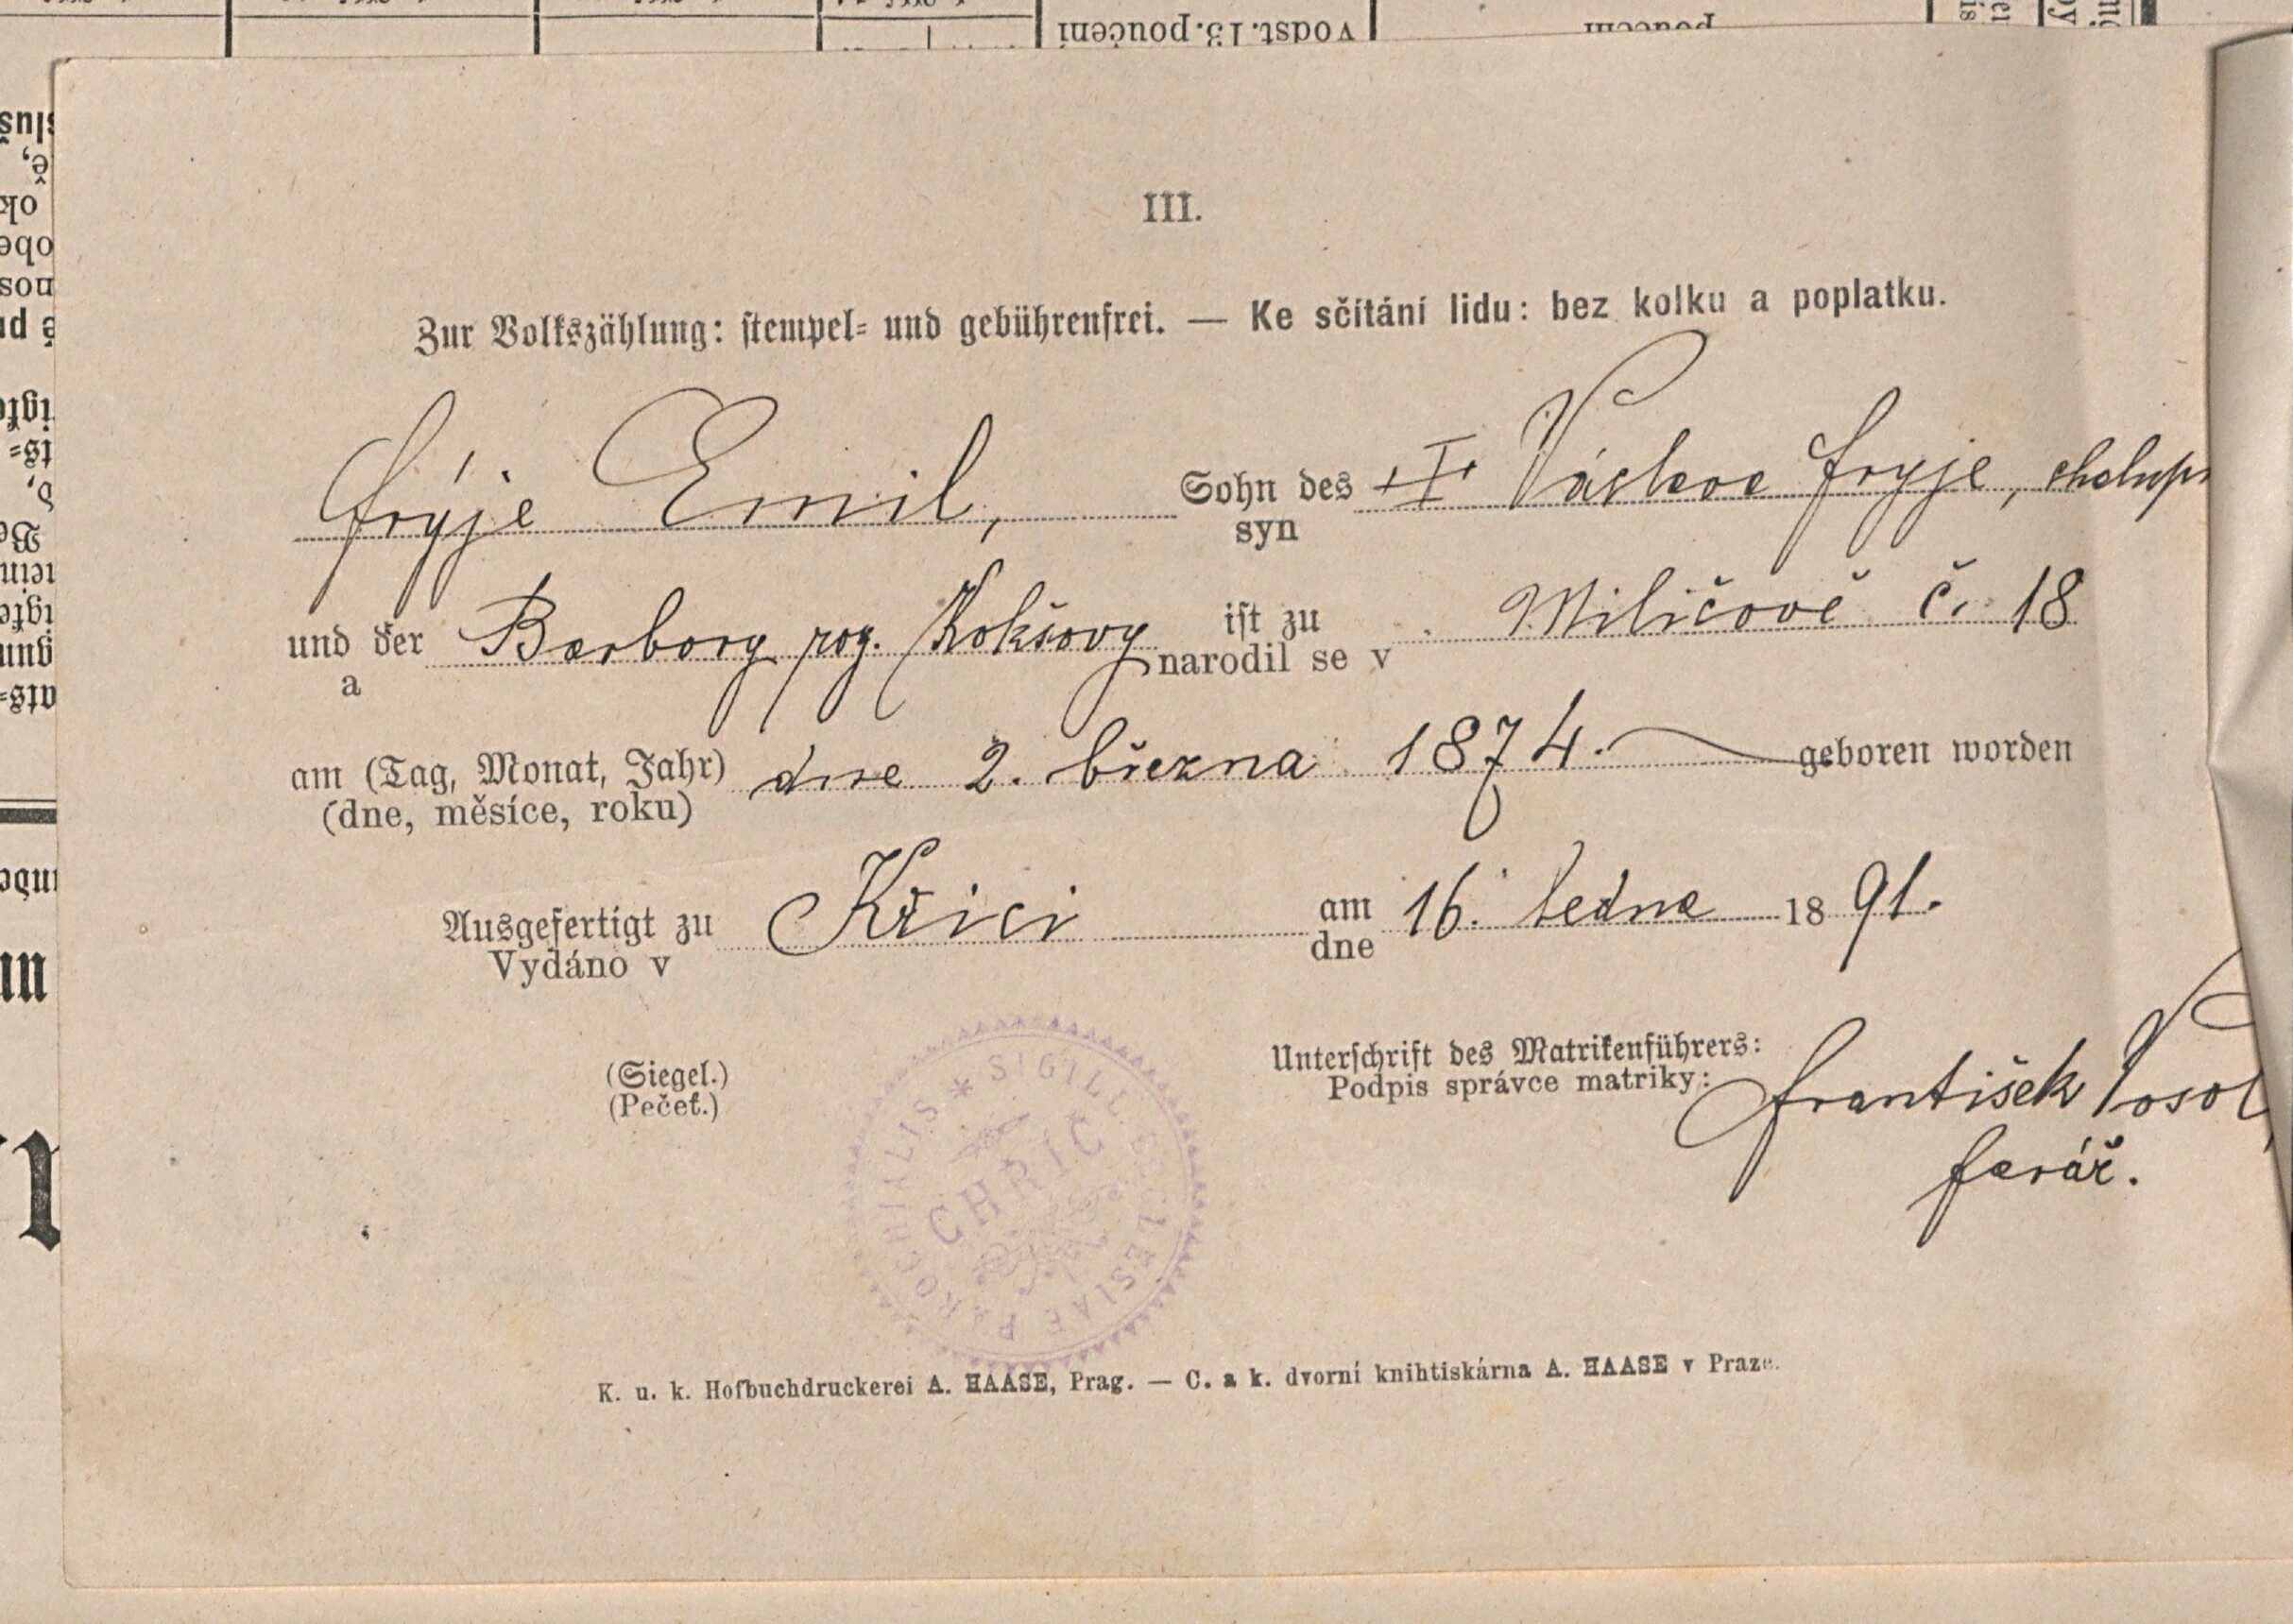 vodst. 13. poučení
III.
Zur Volkszählung: stempel- und gebührenfrei. — Ke sčítání lidu: bez kolku a poplatku.
Frýje Emil, Sohn des Václava Fryje,
syn
und der Barbory roz. Kokšovy ist zu Miličově č. 18
a narodil se v
am (Tag, Monat, Jahr) dne 2. března 1874. geboren worden
(dne, měsíce, roku)
Ausgefertigt zu Křici am 16. ledna 1891.
Vydáno v dne
Unterschrift des Matrikenführers: František
(Siegel.) Podpis správce matriky:
(Pečeť.)
farář.
* SIGILL. ECCLESIAE PAROCHIALIS
CHŘIČ
K. u. k. Hofbuchdruckerei A. HAASE, Prag. — C. a k. dvorní knihtiskárna A. HAASE v Praze.